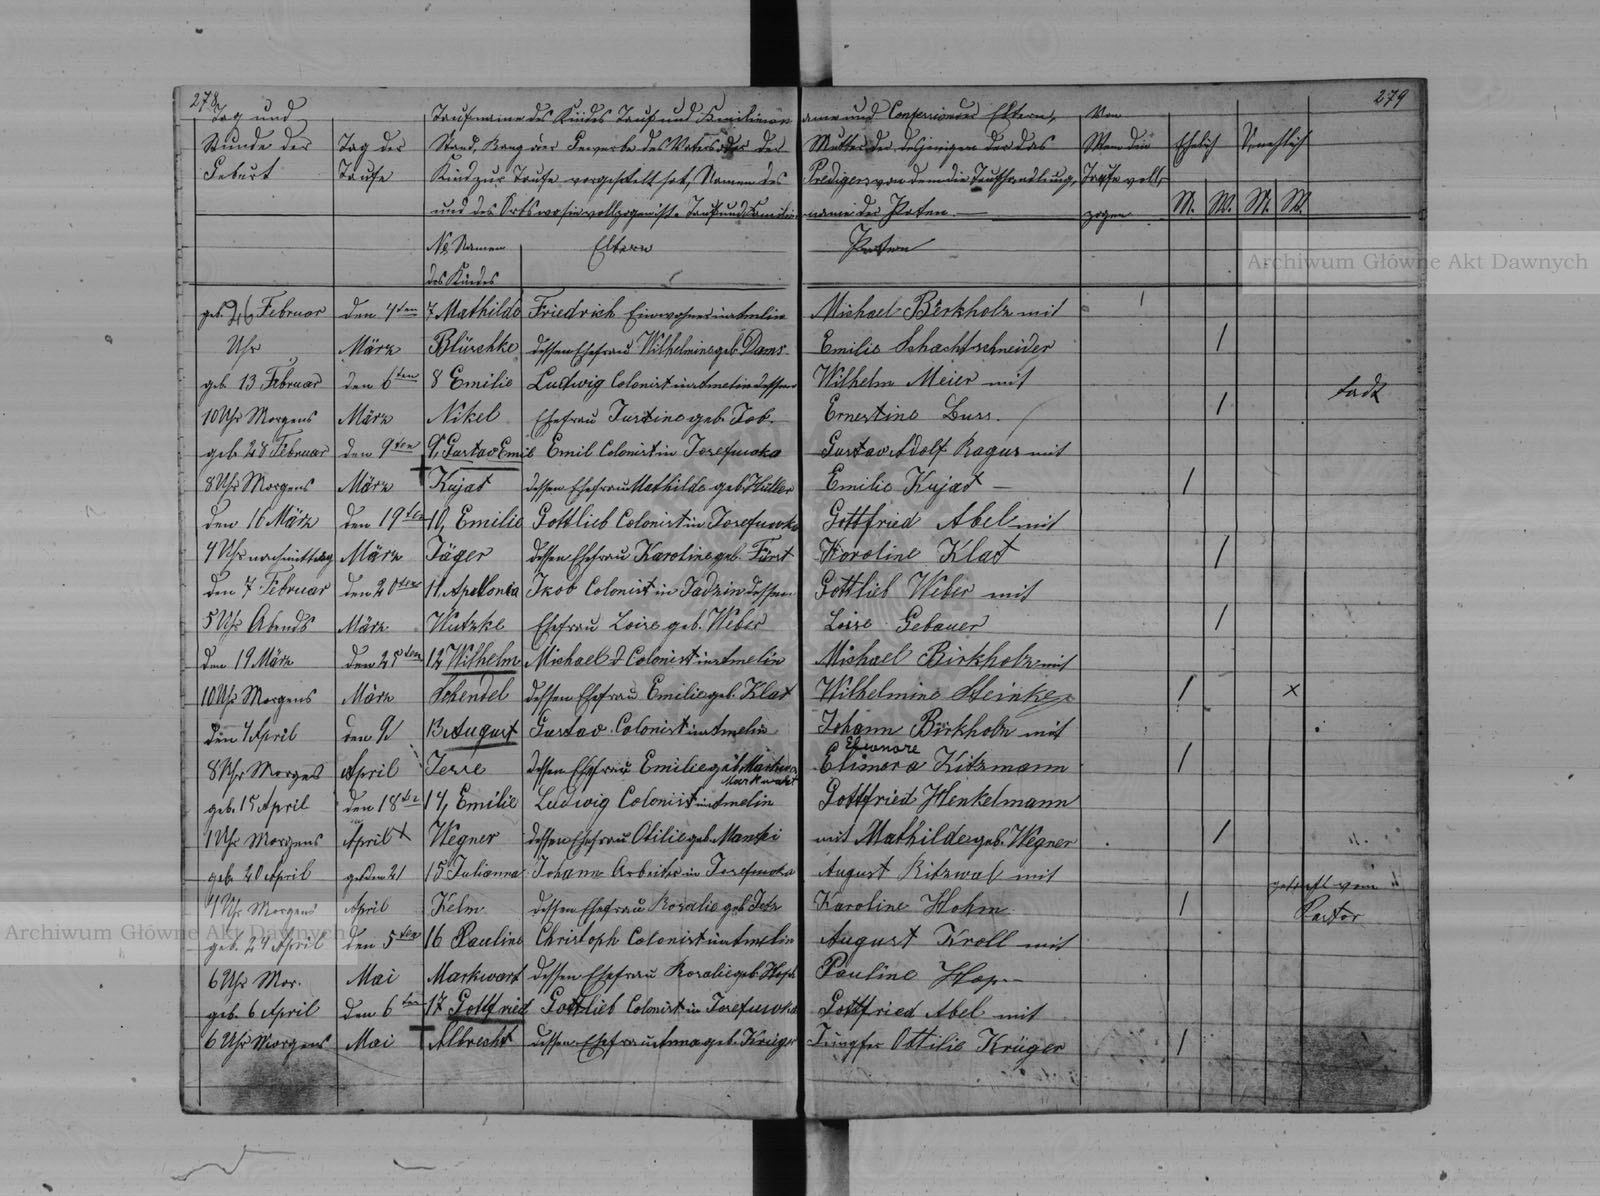 278
279
Tag und
Stunde der
Geburt
Tag der
Taufe
Taufname des Kindes Tauf und Familien
name und Confession der Eltern,
Stand, Rang oder Gewerbe des Vaters oder der
Mutter der desjenigen der das
Kind zur Taufe vorgestellt hat, Namen des
Predigers von dem die Taufhandlung,
und des Orts wo sie vollzogen ist. Tauf und Familien
name der Paten.
Von
Wem die
Taufe voll
zogen
Ehelich
Unehelich
M. W. M. W.
No Namen
des Kindes
Eltern
Paten
geb. Februar den 4ten 7 Mathilde Friedrich Einwohner in Amelin Michael Birkholz mit
Uhr März Blüschke dessen Ehefrau Wilhelmine geb. Dams Emilie Schachtschneider
geb 13 Februar den 6ten 8 Emilie Ludwig Colonist in Amelin dessen Wilhelm Meier mit
10 Uhr Morgens März Nikel Ehefrau Justine geb. Job. Ernestine Buss.
geb. 28 Februar den 9ten 9, Gustav Emil Emil Colonist in Josefuwka Gustav Adolf Ragus mit
8 Uhr Morgens März Kujat dessen Ehefrau Mathilde geb. Emilie Kujat
den 16 März den 19ten 10, Emilie Gottlieb Colonist in Josefuwka Gottfried Abel mit
4 Uhr nachmittag März Jäger dessen Ehefrau Karoline geb. Fürst Karoline Klat
den 7 Februar den 20ten 11. Apellonia Jkob Colonist in Jadzin dessen Gottlieb Weber mit
5 Uhr Abends März Wutzke Ehefrau Loise geb. Weber Loise Gebauer
den 19 März den 25ten 12 Wilhelm Michael Colonist in Amelin Michael Birkholz mit
10 Uhr Morgens März Schendel dessen Ehefrau Emilie geb. Klat Wilhelmine Heinke x
den 4 April den 9 13 August Gustav Colonist in Amelin Johann Birkholz mit
Eleonore
8 Uhr Morges April Jesse dessen Ehefrau Emilie geb. Elimora Kitzmann
Markwart
geb. 15 April den 18te 14, Emilie Ludwig Colonist in Amelin Gottfried Henkelmann
1 Uhr Morgens April Wegner dessen Ehefrau Otilie geb. Manski mit Mathilde geb. Wegner
geb. 20 April 21 15 Julianna Johann Arbeiter in Josefuwka August Ritzwal mit
getauft vom
4 Uhr Morgens April Kelm dessen Ehefrau Rosalie geb. Karoline Hohm Pastor
geb. 24 April den 5ten 16 Pauline Christoph Colonist in Amelin August Kroll mit
6 Uhr Mor. Mai Markwart dessen Ehefrau Rosalie geb. Pauline Hop
geb. 6 April den 6ten 17 Gottfried Gottlieb Colonist in Josefuwka Gottfried Abel mit
6 Uhr Morgens Mai Albrecht dessen Ehefrau Anna geb. Krüger Jungfer Ottilie Krüger
Archiwum Główne Akt Dawnych
Archiwum Główne Akt Dawnych